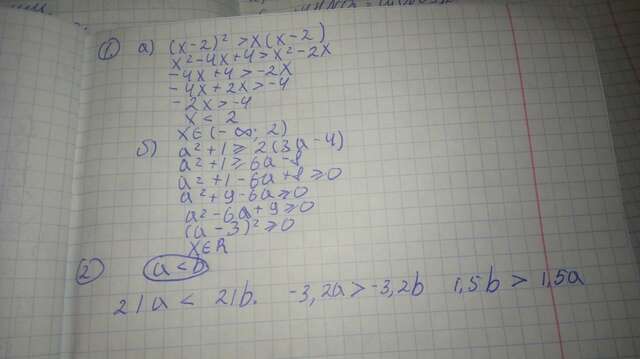 1 а) (x-2)² > x(x-2)
x² - 4x + 4 > x² - 2x
-4x + 4 > -2x
-4x + 2x > -4
-2x > -4
x < 2
x ∈ (-∞; 2)
б) a² + 1 ≥ 2(3a - 4)
a² + 1 ≥ 6a - 8
a² + 1 - 6a + 8 ≥ 0
a² + 9 - 6a ≥ 0
a² - 6a + 9 ≥ 0
(a - 3)² ≥ 0
x ∈ R
2 a < b
21a < 21b. -3,2a > -3,2b 1,5b > 1,5a